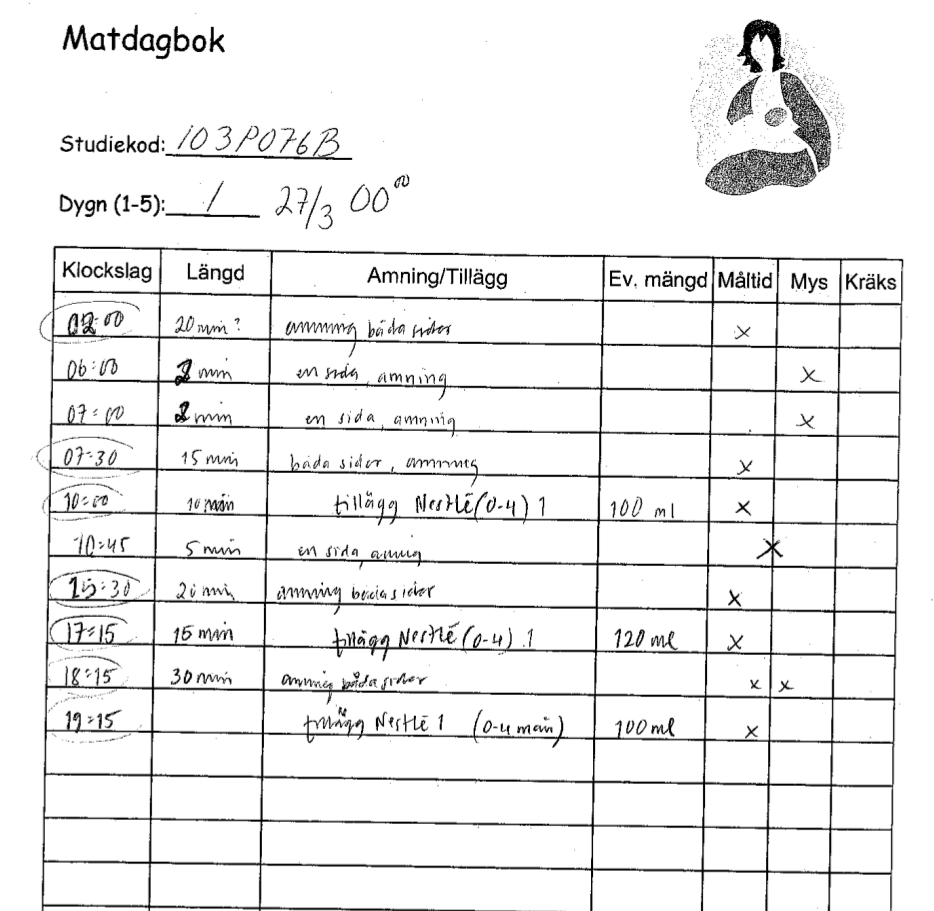 Matdagbok
Studiekod: 103P076B
Dygn (1-5): 1 27/3 00⁰⁰
Klockslag Längd Amning/Tillägg Ev. mängd Måltid Mys Kräks
02:00 20 min? amning båda sidor x
06:00 2 min en sida, amning x
07:00 2 min en sida, amning x
07:30 15 min båda sidor, amning x
10:00 10 min tillägg Nestlé (0-4) 1 100 ml x
10:45 5 min en sida amnig x
15:30 20 min amning båda sidor x
17:15 15 min tillägg Nestlé (0-4) 1 120 ml x
18:15 30 min amnig båda sidor x x
19:15 tillägg Nestlé 1 (0-4 mån) 100 ml x